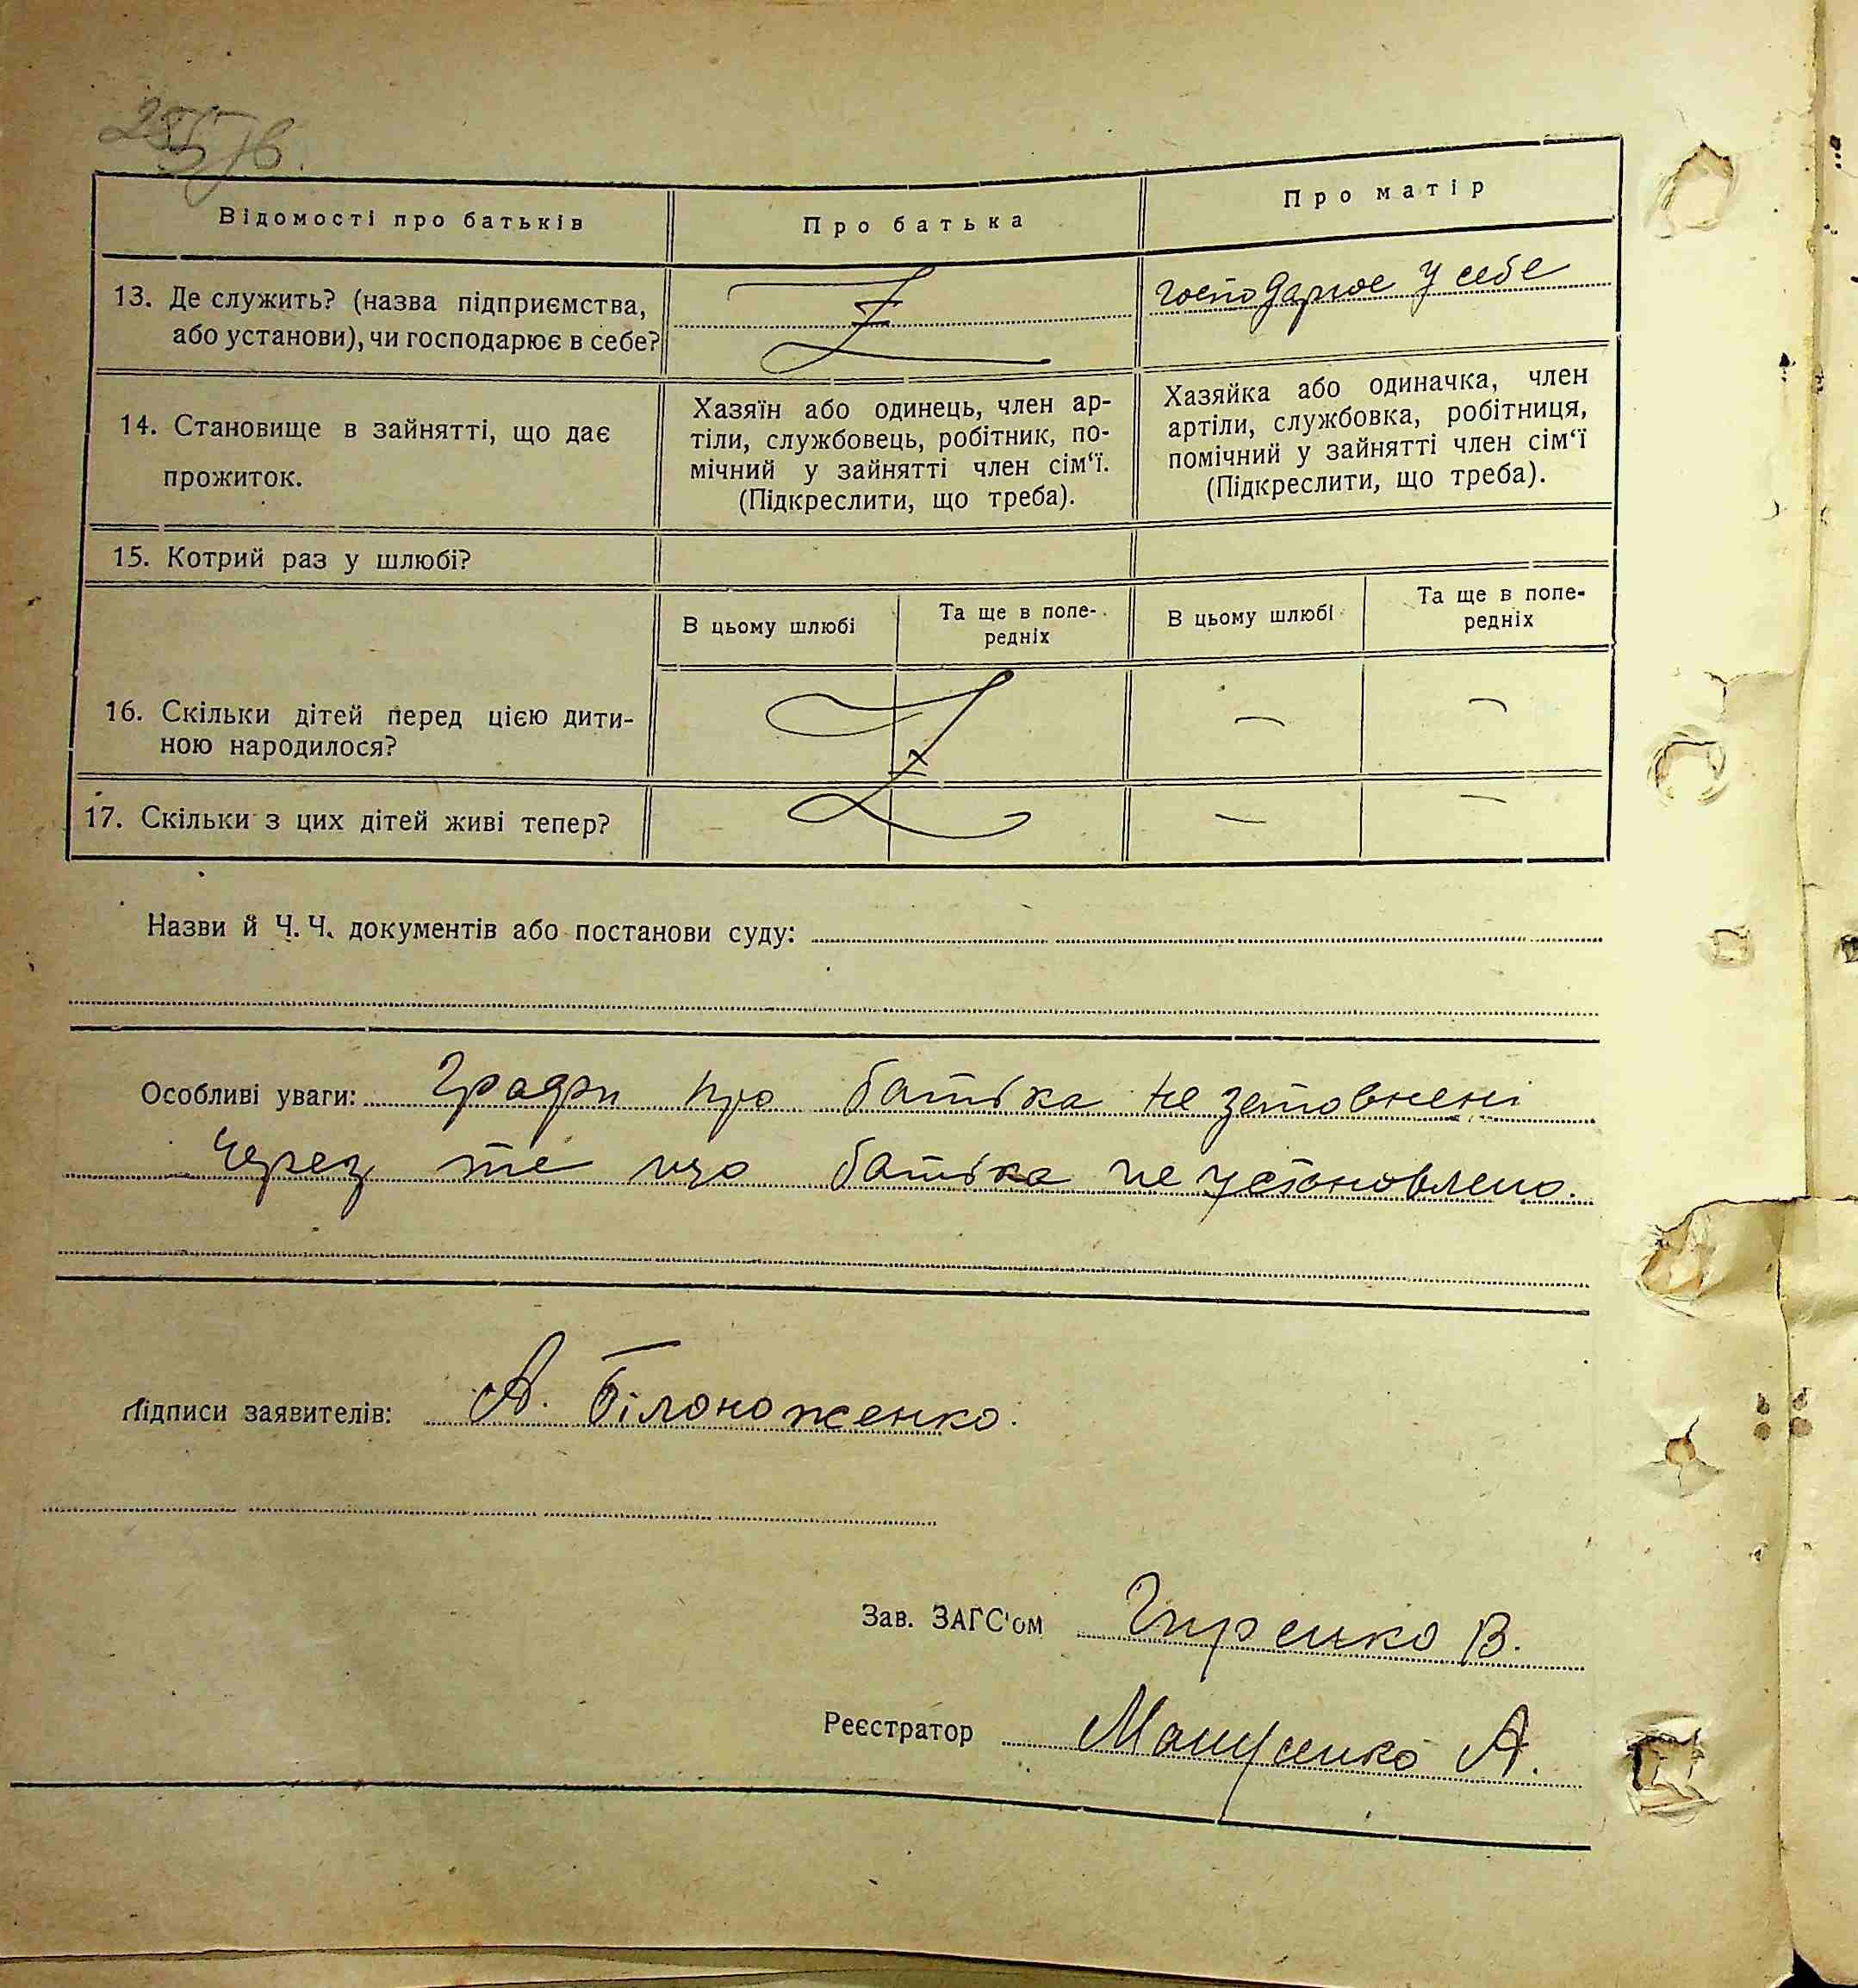 Відомості про батьків
Про батька
Про матір
13. Де служить? (назва підприємства,
або установи), чи господарює в себе?
господарює у себе
14. Становище в зайнятті, що дає
прожиток.
Хазяїн або одинець, член ар-
тіли, службовець, робітник, по-
мічний у зайнятті член сім‘ї.
(Підкреслити, що треба).
Хазяйка або одиначка, член
артіли, службовка, робітниця,
помічний у зайнятті член сім‘ї
(Підкреслити, що треба).
15. Котрий раз у шлюбі?
В цьому шлюбі
Та ще в попе-
редніх
В цьому шлюбі
Та ще в попе-
редніх
16. Скільки дітей перед цією дити-
ною народилося?
— —
17. Скільки з цих дітей живі тепер?
— —
Назви й Ч. Ч. документів або постанови суду:
Особливі уваги: Графи про батька не заповнені
через те що батька не установлено.
Підписи заявителів: А. Білоноженко.
Зав. ЗАГС'ом Гиренко В.
Реєстратор А.